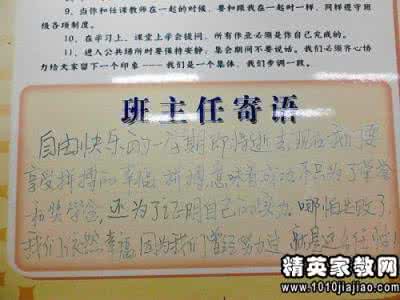 9、当你和任课教师在一起的时候，要和跟我在一起时一样，同样遵守班
级各项制度。
10、在学习上，课堂上学会提问，所有作业必须是你自己完成的。
11、进入公共场所时要保持安静；集会期间不要说话。我们必须齐心协
力给大家留下一个印象——我们是一个集体，我们步调一致。
班主任寄语
自由快乐的一星期即将逝去 现在我们要
享受拼搏的幸福 拼搏意味着成功 不只为了荣誉
和奖学金，还为了证明自己的实力。哪怕失败了
我们依然幸福，因为我们曾经努力过
精英家教网
www.1010jiajiao.com